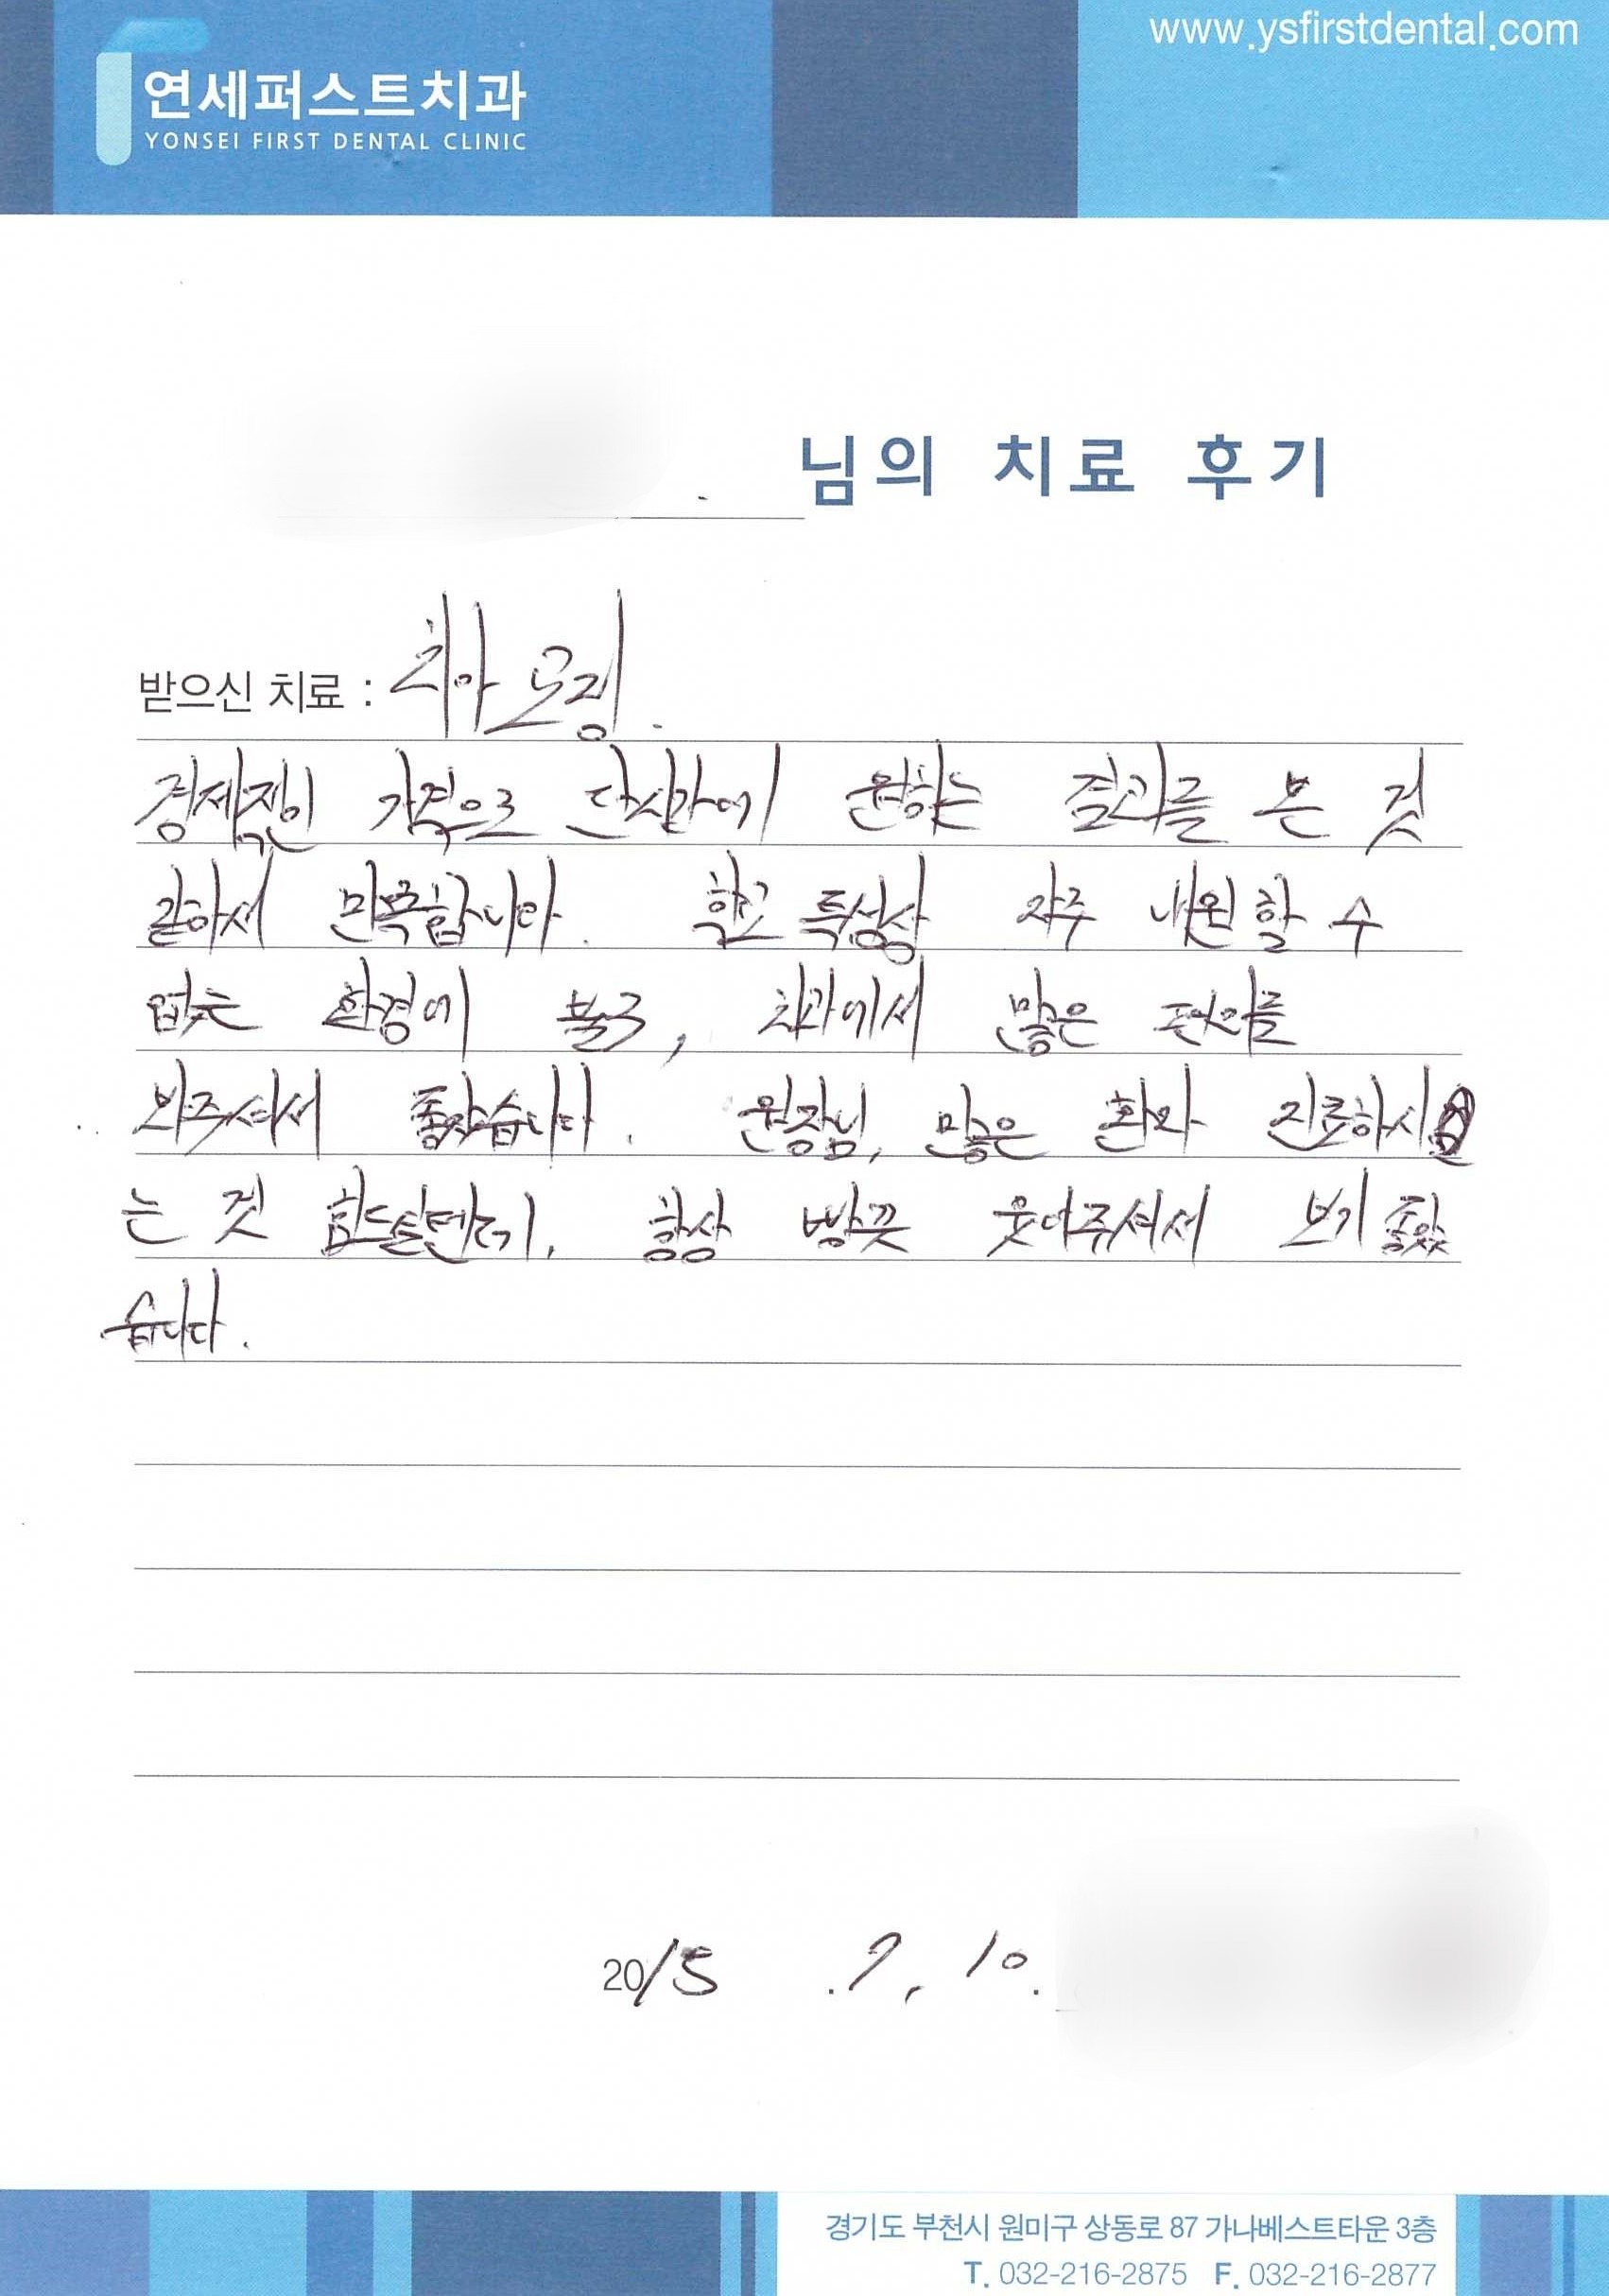 www.ysfirstdental.com
연세퍼스트치과
YONSEI FIRST DENTAL CLINIC
님의 치료 후기
받으신 치료 : 치아 교정.
경제적인 가격으로 단시간에 원하는 결과를 본 것
같아서 만족합니다. 학교 특성상 자주 내원할 수
없는 환경에 불구, 치과에서 많은 편의를
봐주셔서 좋았습니다. 원장님, 많은 환자 진료하시
는 것 힘드실텐데, 항상 방긋 웃어주셔서 보기 좋았
습니다.
2015 .7. 10.
경기도 부천시 원미구 상동로 87 가나베스트타운 3층
T. 032-216-2875 F. 032-216-2877